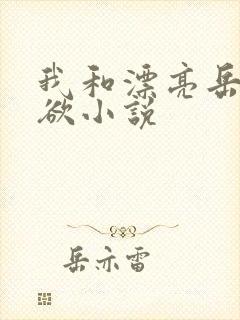 我和漂亮岳
欲小说
岳亦雷